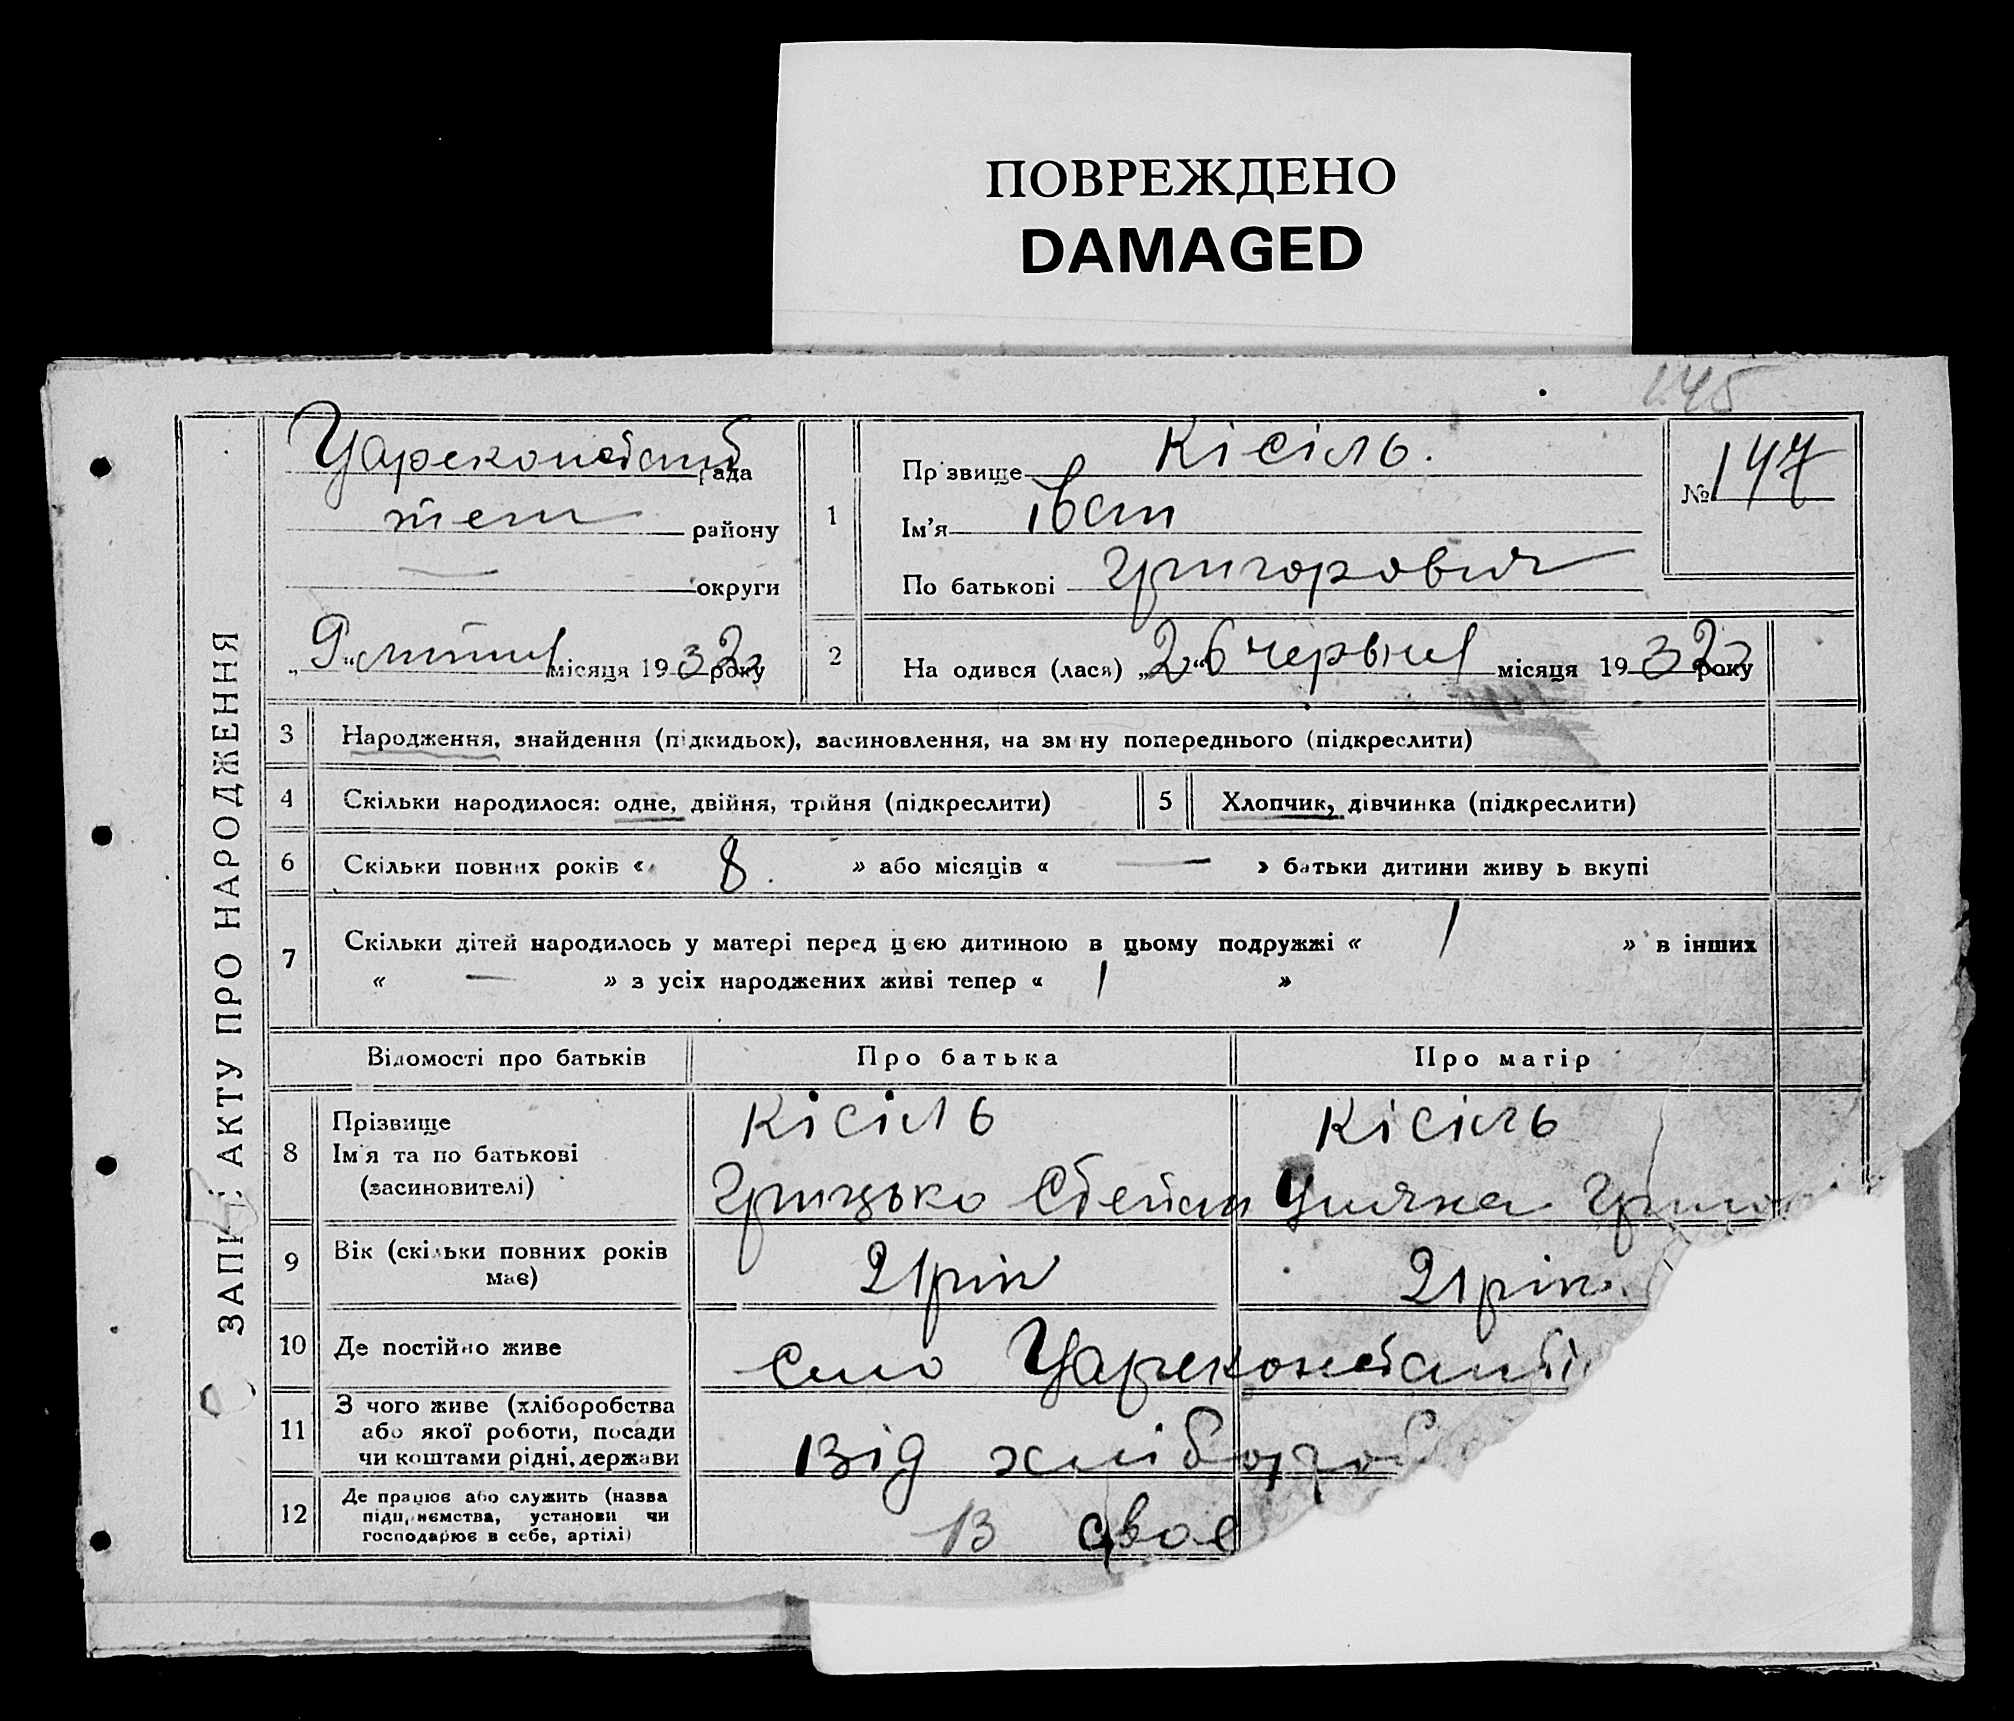 ПОВРЕЖДЕНО
DAMAGED
245
ЗАПИС АКТУ ПРО НАРОДЖЕННЯ
Цареконстант рада
району
— округи
„9“ липня місяця 1932 року
1
Пр звище Кісіль.
Ім'я Іван
По батькові Григорович
№ 147
2
На одився (лася) „26“ червня місяця 1932 року
3 Народження, знайдення (підкидьок), засиновлення, на зм ну попереднього (підкреслити)
4 Скільки народилося: одне, двійня, трійня (підкреслити)
5 Хлопчик, дівчинка (підкреслити)
6 Скільки повних років « 8. » або місяців « — » батьки дитини живу ь вкупі
7 Скільки дітей народилось у матері перед цією дитиною в цьому подружжі « 1 » в інших
« — » з усіх народжених живі тепер « 1 »
Відомості про батьків Про батька Про матір
8 Прізвище
Ім'я та по батькові
(засиновителі)
Кісіль
Грицько Степан
Кісіль
9 Вік (скільки повних років
має)
21 рік
21 рік.
10 Де постійно живе
село Цареконстанті
11 З чого живе (хліборобства
або якої роботи, посади
чи коштами рідні, держави
Від хлібороб
12 Де працює або служить (назва
підприємства, установи чи
господарює в себе, артілі)
В своє